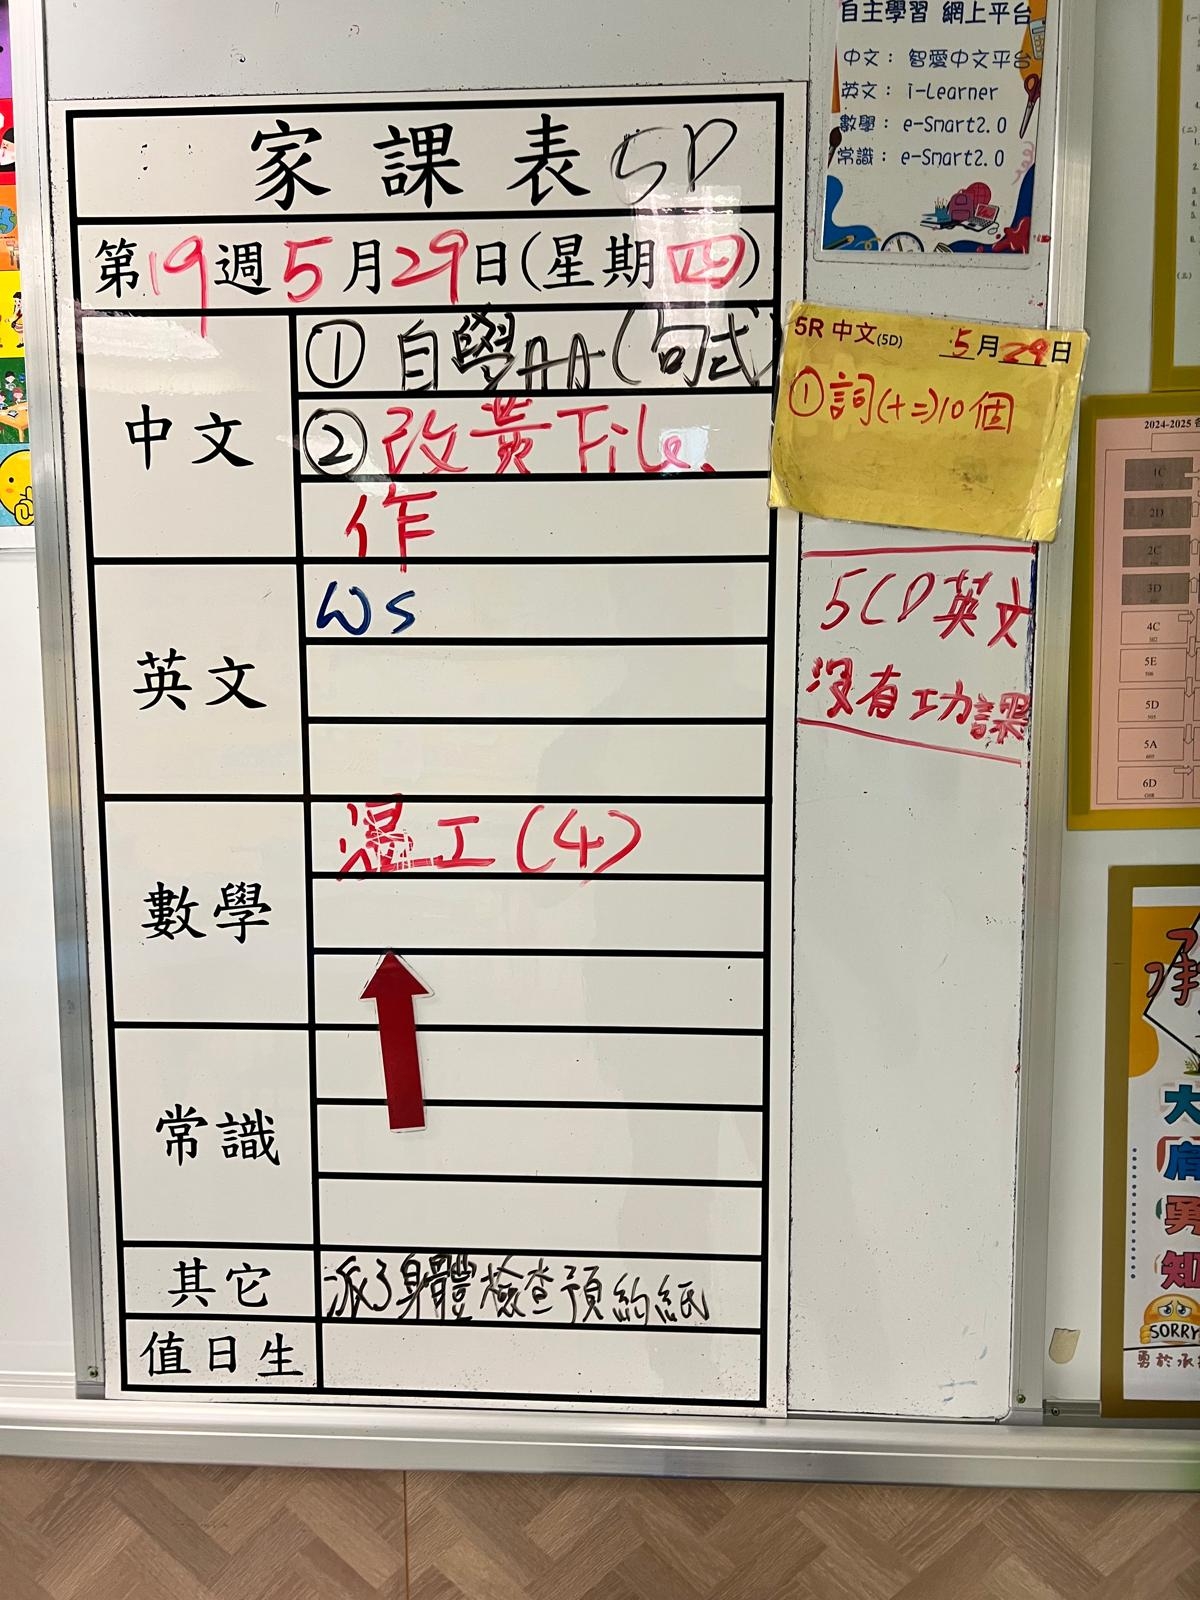 家課表 5D
第19週5月29日(星期四)
中文
① 自學冊(句式)
② 改黃File、
作
英文
WS
數學
濕工(4)
常識
其它
派了身體檢查預約紙
值日生
自主學習 網上平台
中文： 智愛中文平台
英文： i-Learner
數學： e-Smart2.0
常識： e-Smart2.0
5R 中文(5D) 5月29日
①詞(十二)10個
5CD英文
沒有功課
2024-2025
1C
2D
2C
3D
4C
5E
5D
5A
6D
大
勇
知
SORRY
勇於承